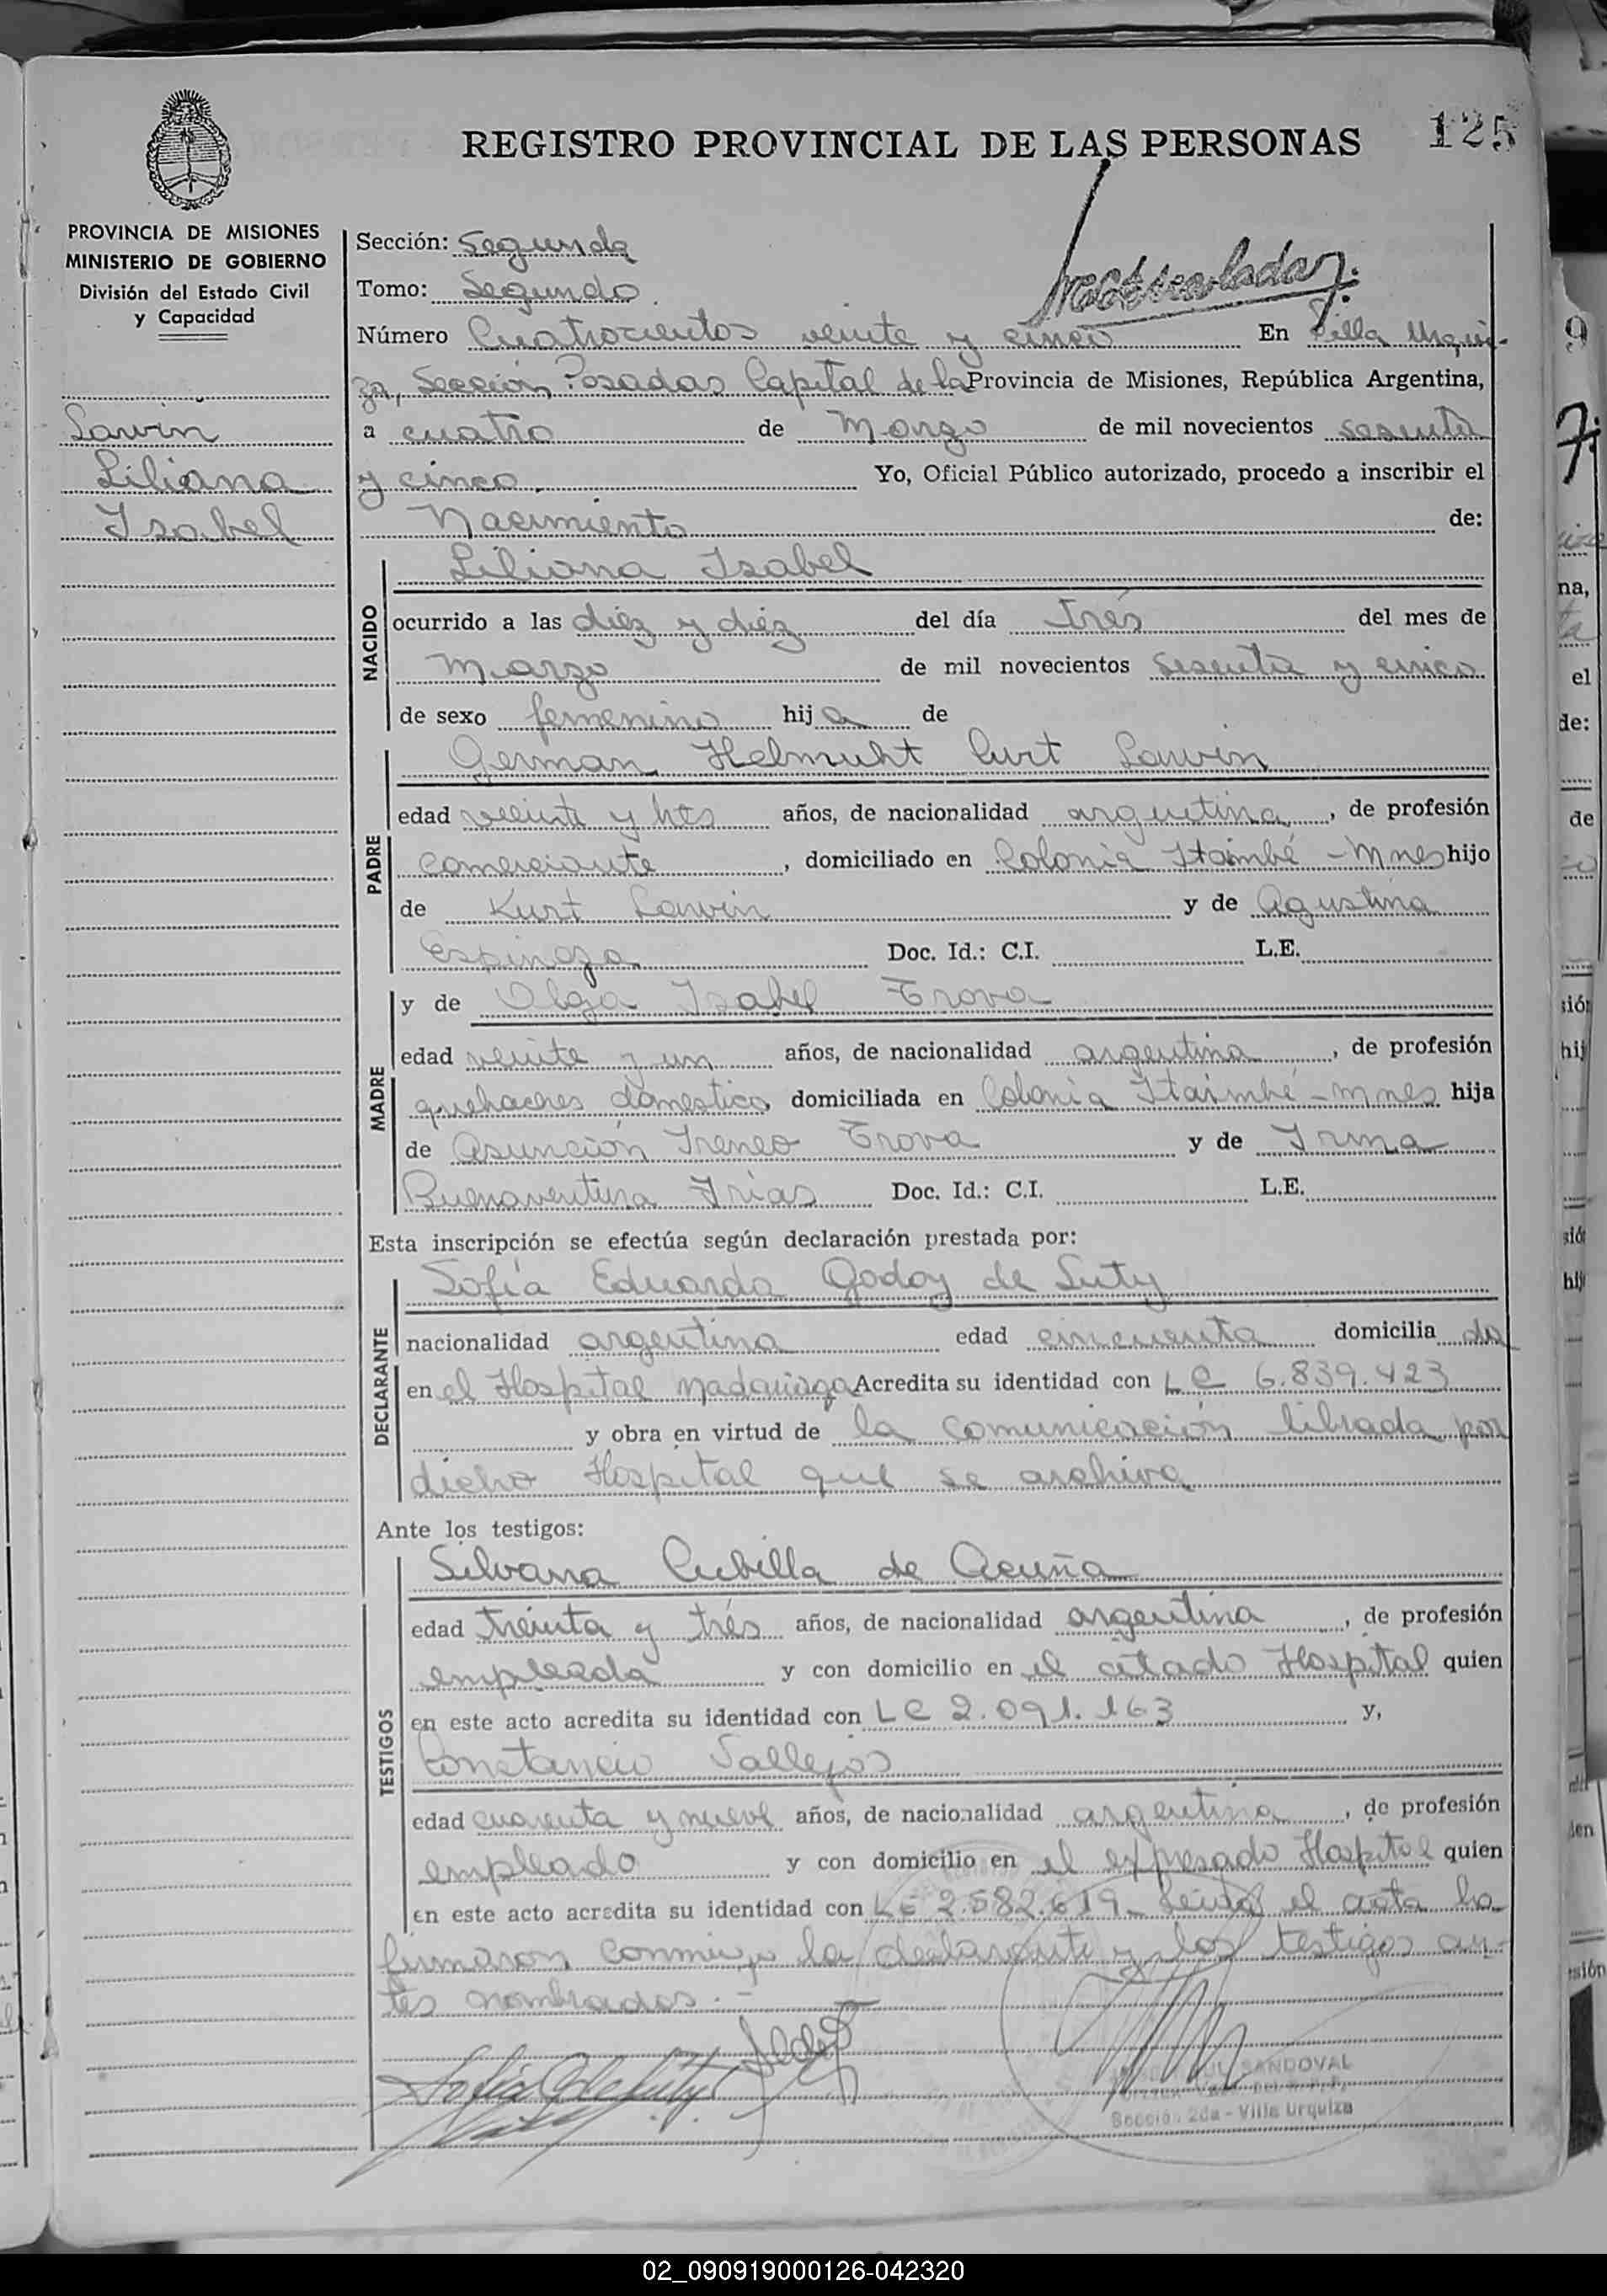 125
REGISTRO PROVINCIAL DE LAS PERSONAS
PROVINCIA DE MISIONES
MINISTERIO DE GOBIERNO
División del Estado Civil
y Capacidad
Lawin
Liliana
Isabel
Sección: Segunda
Tomo: Segundo
Número Cuatrocientos veinte y cinco En Villa Urqui-
za, Sección Posadas Capital de la Provincia de Misiones, República Argentina,
a cuatro de Marzo de mil novecientos sesenta
y cinco. Yo, Oficial Público autorizado, procedo a inscribir el
Nacimiento de:
NACIDO
Liliana Isabel
ocurrido a las diéz y diéz del día Trés del mes de
Marzo de mil novecientos sesenta y cinco
de sexo femenino hij a de
PADRE
German Helmuht Curt Lawin
edad veinte y trés años, de nacionalidad argentina, de profesión
comerciante, domiciliado en Colonia Itaimbé - Mnes hijo
de Kurt Lawin y de Agustina
Espinoza Doc. Id.: C.I. L.E.
MADRE
y de Olga Isabel Trova
edad veinte y un años, de nacionalidad argentina, de profesión
quehaceres domestico, domiciliada en Colonia Itaimbé - Mnes hija
de Asunción Ireneo Trova y de Irma
Buenaventura Frias Doc. Id.: C.I. L.E.
Esta inscripción se efectúa según declaración prestada por:
DECLARANTE
Sofía Eduarda Godoy de Luty
nacionalidad argentina edad cincuenta domicilia da
en el Hospital Madariaga Acredita su identidad con L C 6.839.423
y obra en virtud de la comunicación librada por
dicho Hospital que se archiva
Ante los testigos:
TESTIGOS
Silvana Cubilla de Acuña
edad treinta y trés años, de nacionalidad argentina, de profesión
empleada y con domicilio en el citado Hospital quien
en este acto acredita su identidad con L C 2.091.163 y,
Constancio Vallejos
edad cuarenta y nueve años, de nacionalidad argentina, de profesión
empleado y con domicilio en el expresado Hospital quien
en este acto acredita su identidad con L E 2.582.619_ Leida el acta la
firmaron conmigo la declarante y los testigos an-
tes nombrados.-
SANDOVAL
Sección 2da - Villa Urquiza
02_090919000126-042320